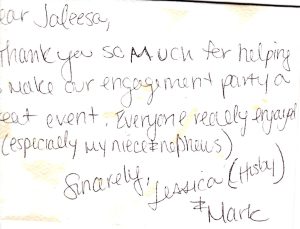 ear Jaleesa,
Thank you so much for helping
make our engagement party a
eat event. Everyone really enjoyed
(especially my niece & nephews)
Sincerely,
Jessica (Husby)
& Mark